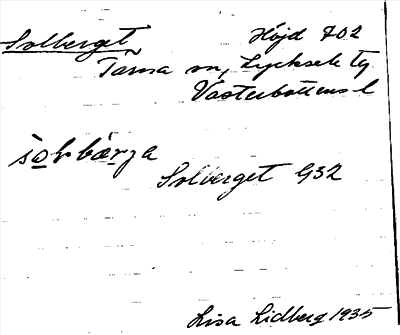 Solberget Höjd 702
Tärna sn, Lycksele tg.
Västerbottens l
Solberget G32
Lisa Lidberg 1935